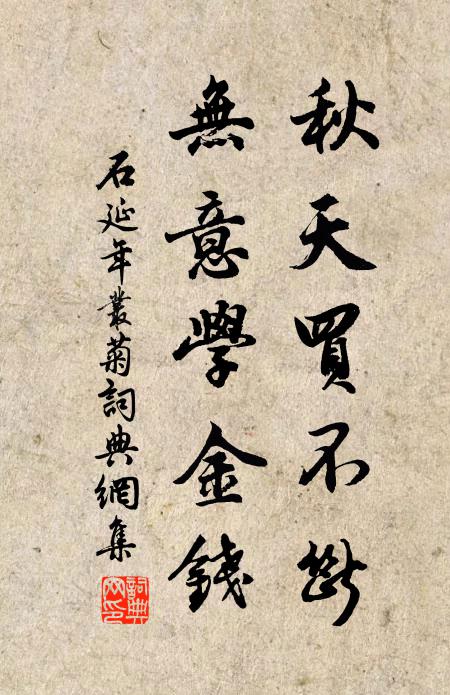 秋天買不斷
無意學金錢
石延年叢菊詞典網集
詞典網印